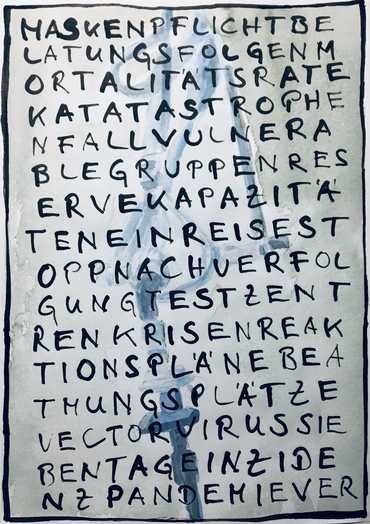 MASKENPFLICHTBE
LATUNGSFOLGENM
ORTALITÄTSRATE
KATATASTROPHE
NFALLVULNERA
BLEGRUPPENRES
ERVEKAPAZITÄ
TENEINREISEST
OPPNACHVERFOL
GUNGTESTZENT
RENKRISENREAK
TIONSPLÄNEBEA
TMUNGSPLÄTZE
VECTORVIRUSSIE
BENTAGEINZIDE
NZPANDEMIEVER